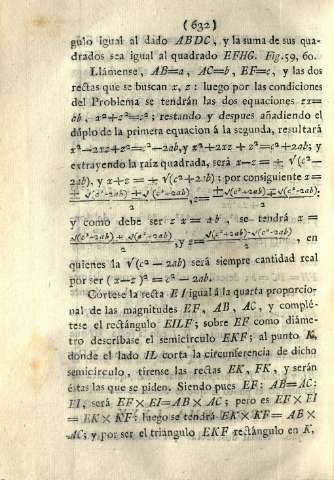 (632)
gulo igual al dado ABDC, y la suma de sus qua-
drados sea igual al quadrado EFHG. Fig. 59, 60.
Llámense, AB=a, AC=b, EF=c, y las dos
rectas que se buscan x, z: luego por las condiciones
del Problema se tendrán las dos equaciones xz=
ab, x²+z²=c²; restando y despues añadiendo el
duplo de la primera equacion á la segunda, resultará
x²-2xz+z²=c²-2ab, y x²+2xz+z²=c²+2ab; y
extrayendo la raíz quadrada, será x-z= + √(c²-
2ab), y x+z= + √(c²+2ab); por consiguiente x=
y como debe ser z x = ab, se tendrá x =
, y z= , en
quienes la √(c² - 2ab) será siempre cantidad real
por ser (x-z)² = c² - 2ab.
Córtese la recta EI igual á la quarta proporcio-
nal de las magnitudes EF, AB, AC, y complé-
tese el rectángulo EILF; sobre EF como diáme-
tro describase el semicírculo EKF; al punto K,
donde el lado IL corta la circunferencia de dicho
semicírculo, tirense las rectas EK, FK, y serán
éstas las que se piden. Siendo pues EF: AB=AC:
EI, será EF×EI=AB×AC; pero es EF×EI
= EK×KF: luego se tendrá EK×KF= AB×
AC; y por ser el triángulo EKF rectángulo en K,